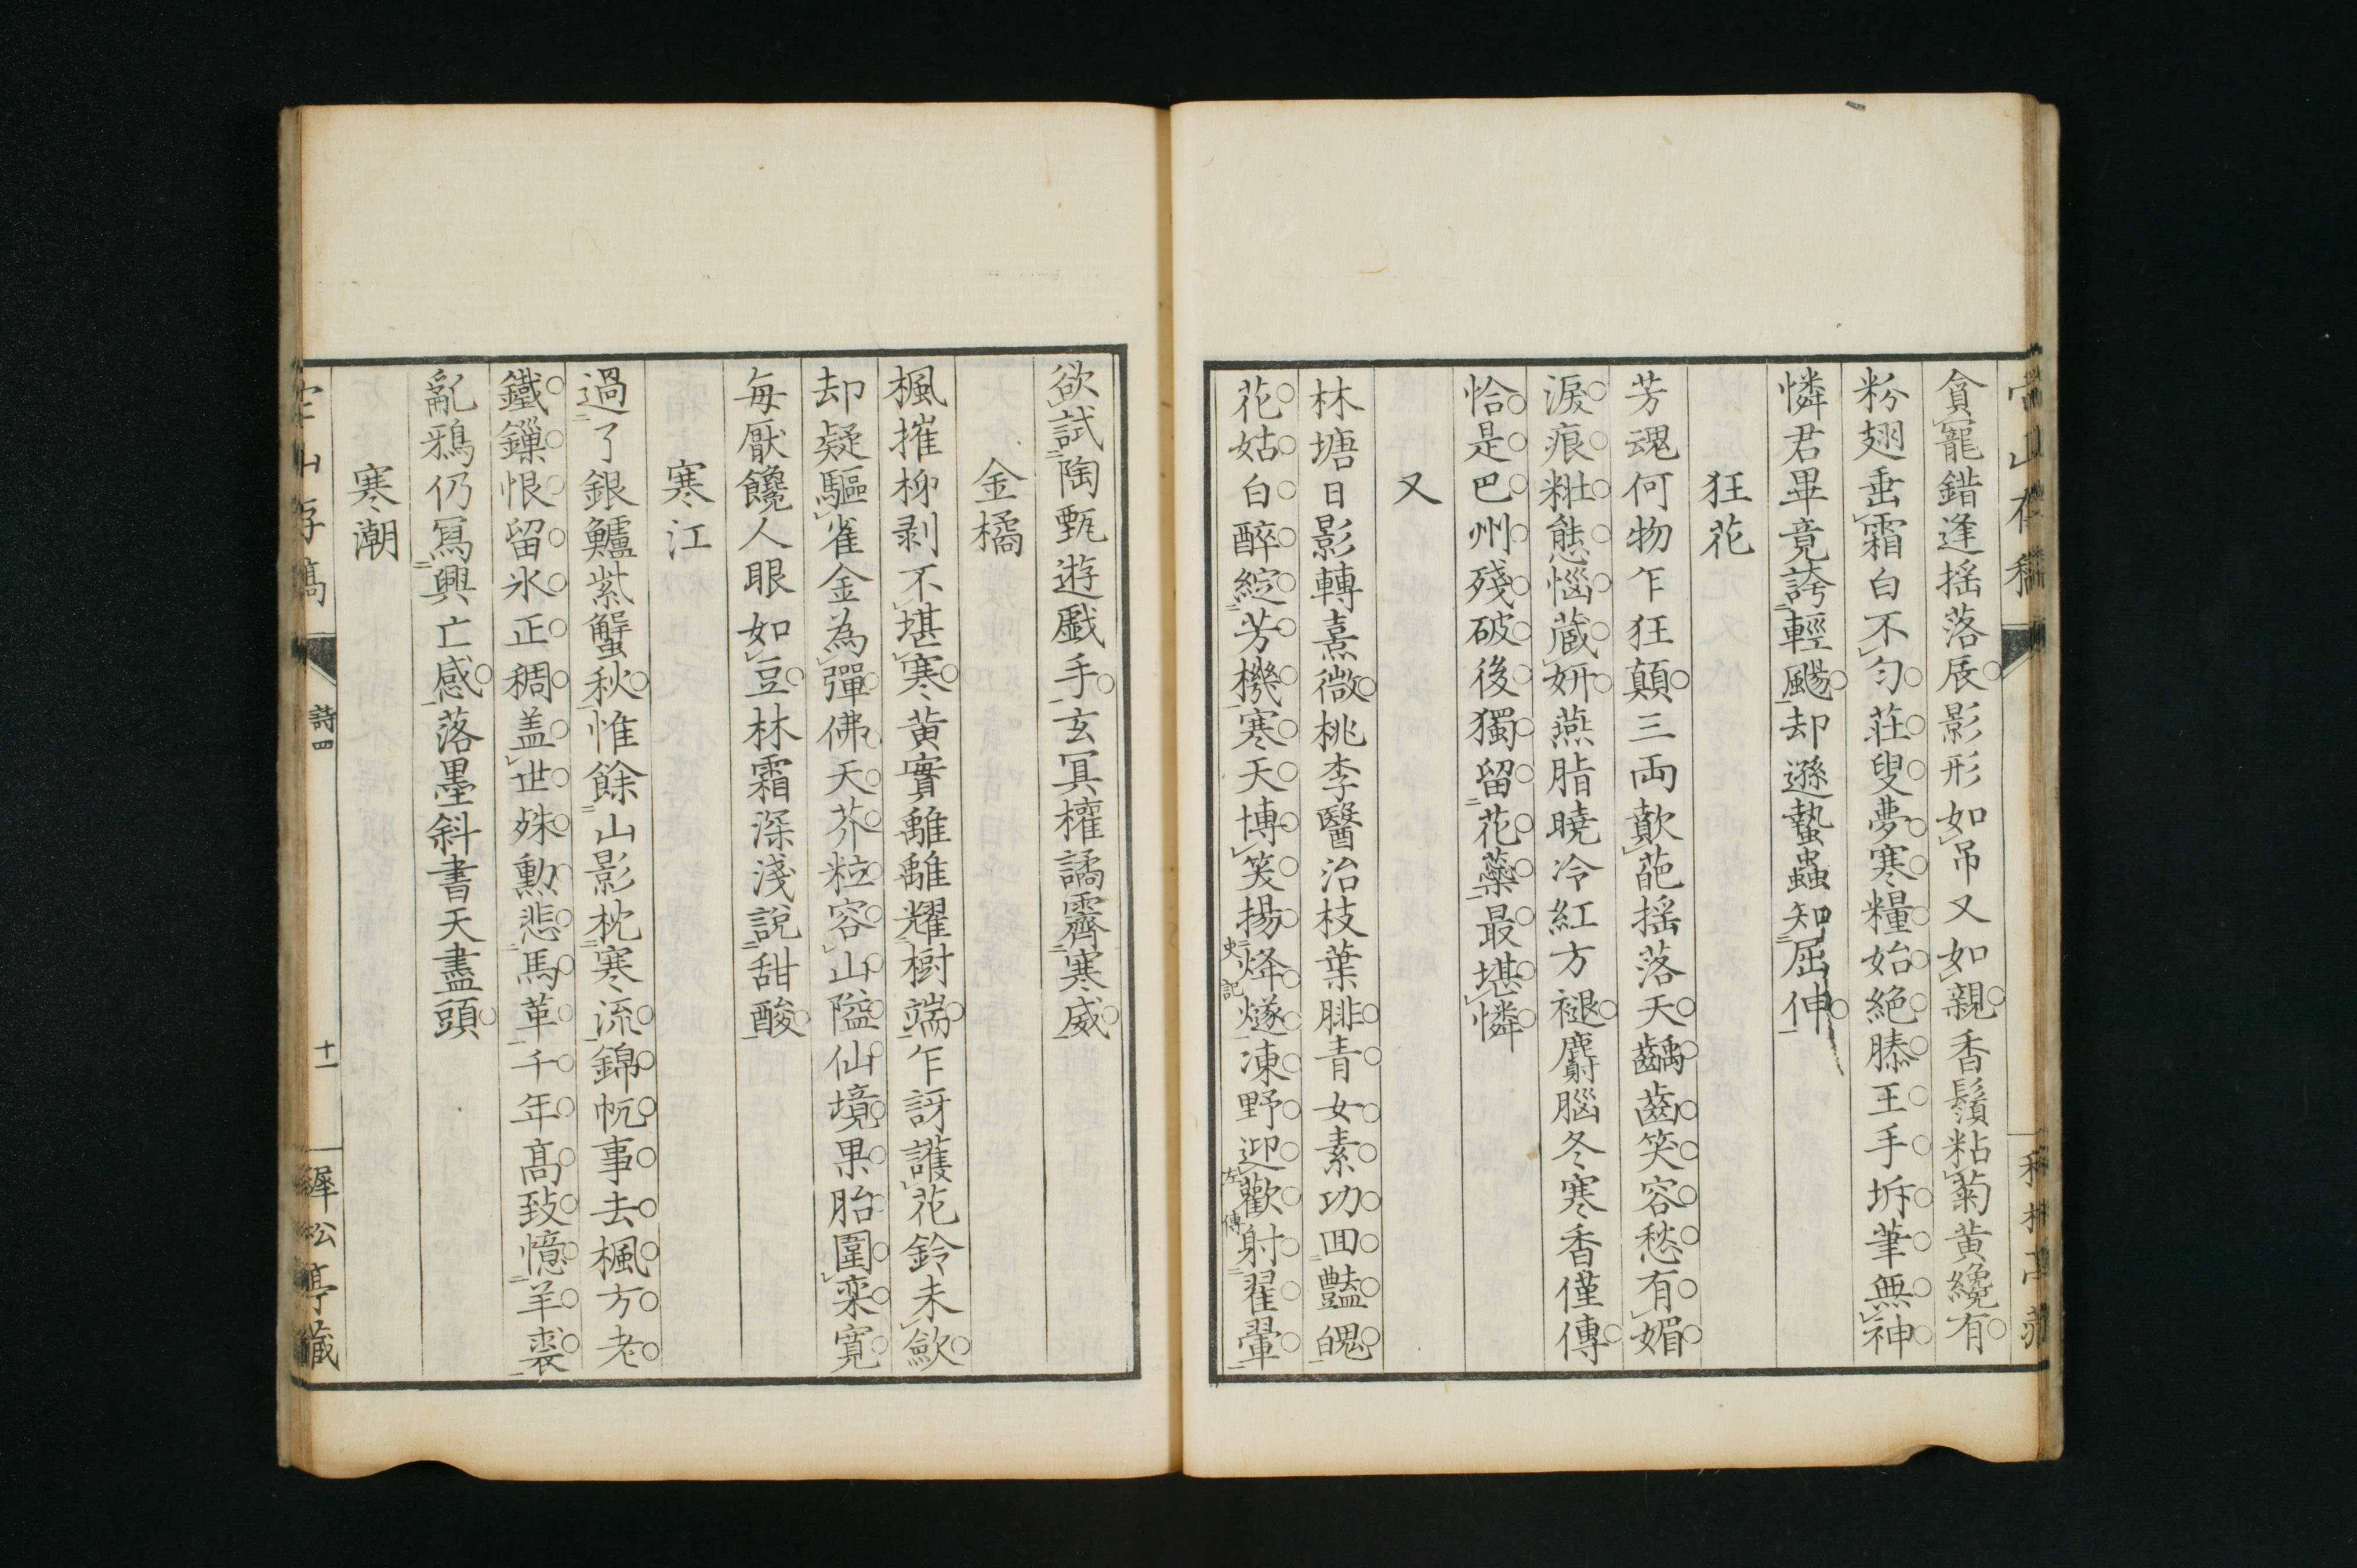 貪寵錯逢揺落辰影形如吊又如親香鬚粘菊黄纔有
粉翅垂霜白不勻荘叟夢寒糧始絶滕王手坼筆無神
憐君畢竟誇輕颺却遜蟄蟲知屈伸
狂花
芳魂何物乍狂顛三両欵葩揺落天齲齒笑容愁有媚
淚痕粧態惱蔵妍燕脂曉冷紅方褪麝腦冬寒香僅傳
恰是巴州殘破後獨留花藥最堪憐
又
林塘日影轉熹微桃李醫治枝葉腓青女素功回豔魄
花姑白醉綻芳機寒天博笑揚烽燧凍野迎歡射翟翬
史記
左傳
欲試陶甄遊戯手玄冥權譎霽寒威
金橘
楓摧柳剥不堪寒黄實離離耀樹端乍訝護花鈴未歛
却疑驅雀金為彈佛天芥粒容山隘仙境果胎圍栾寛
毎厭饞人眼如豆林霜深淺說甜酸
寒江
過了銀鱸紫蟹秋惟餘山影枕寒流錦帆事去楓方老
鐵鏁恨留氷正稠盖世殊勳悲馬革千年髙致憶羊裘
亂鴉仍冩興亡感落墨斜書天盡頭
寒潮
山存稿
詩四
十一
犀松亭藏